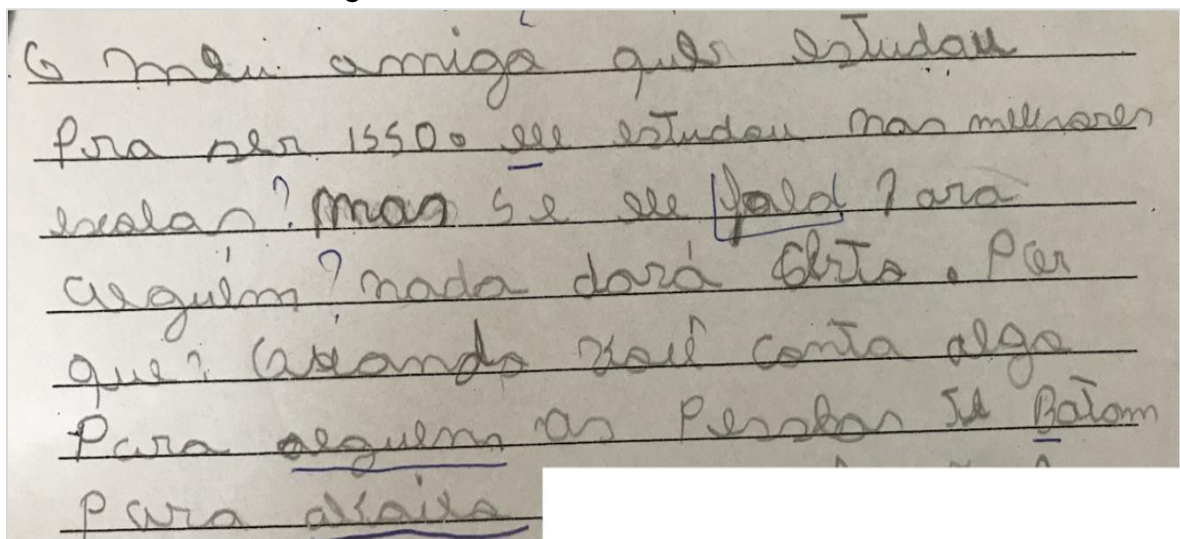 O meu amigo quer estudar
Pra ser isso. ele estudou nas melhores
escolas? mas se ele fala Para
alguém? nada dará certo. Por
que? Quando você conta algo
Para alguem as Pessoas te Botam
para abaixo